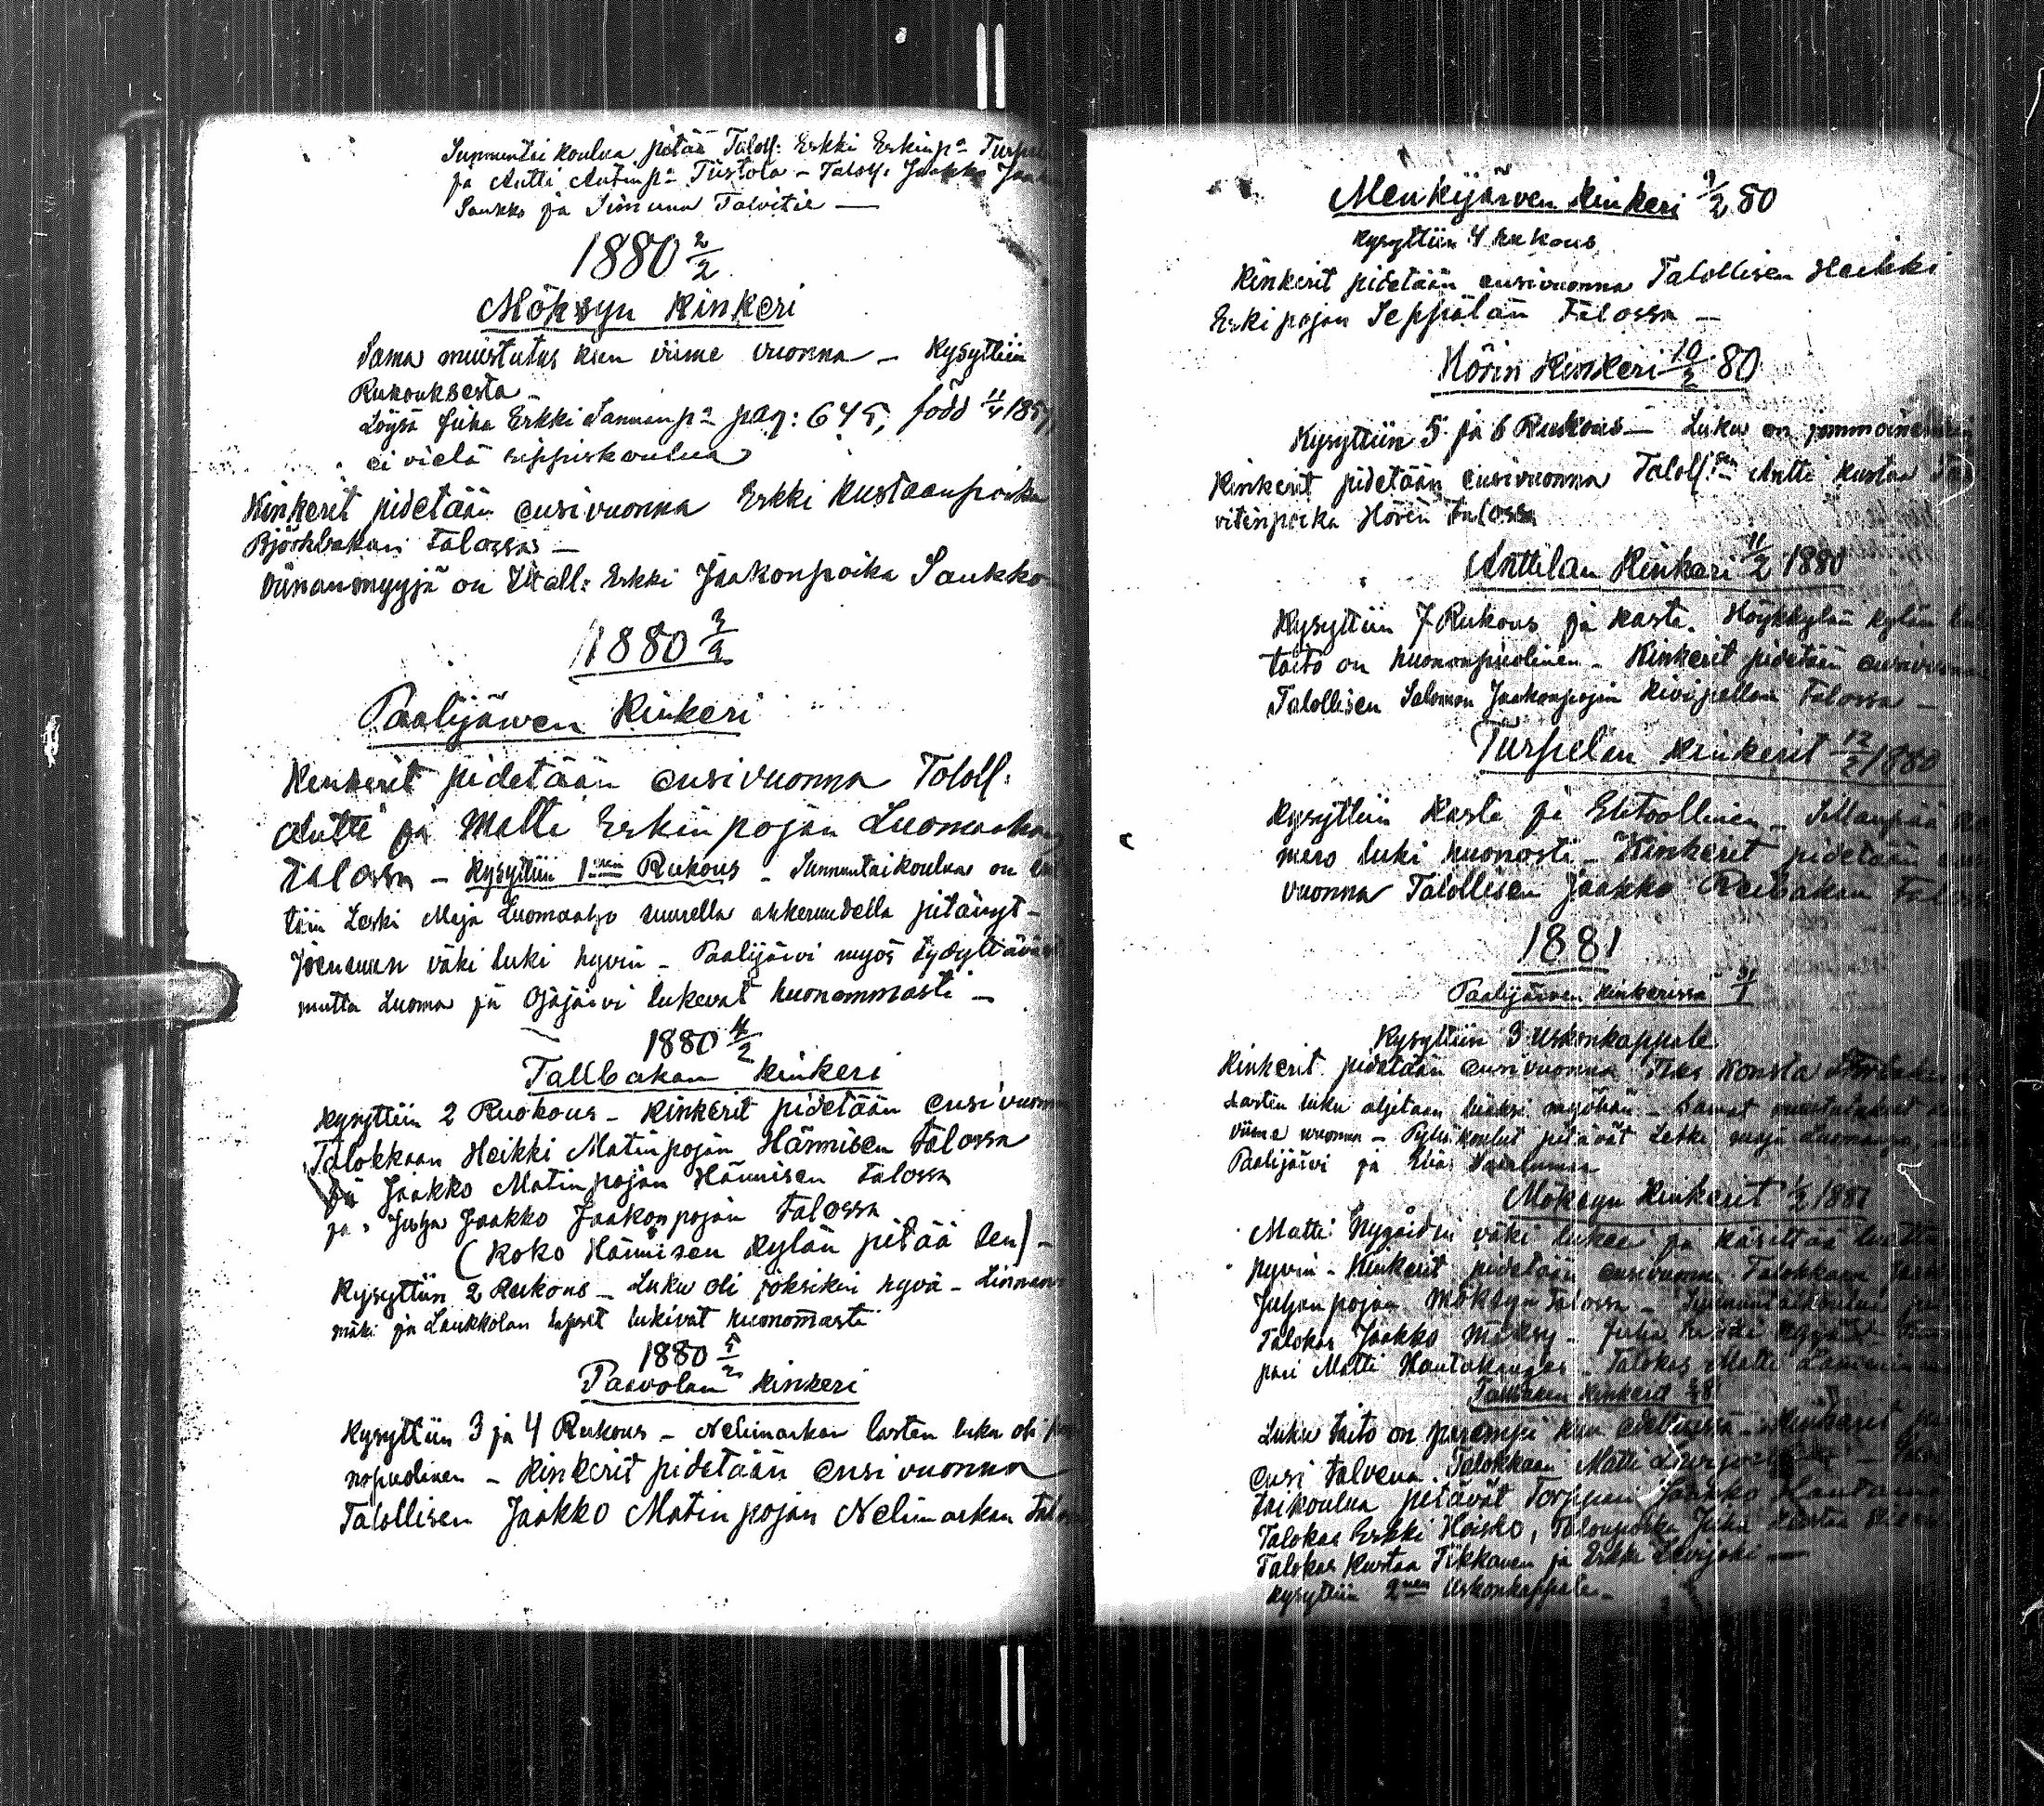 Sunnuntai koulua pitää Taloll: Erkki Erkinpa
ja Antti Antinpa Tiistola - Taloll. Jaakko
Saukko ja Simuna Talvitie —
1880 2/2
Möksyn Kinkeri
Sama muistutus kun viime vuonna - Kysyttiin
Rukouksesta -
Löysä Juha Erkki Sannanpa pag: 645, född 11/4 185
ei vielä rippiskoulua
Kinkerit pidetään ensivuonna Erkki Kustaanpoika
Björkbakan talossa —
Viinanmyyjä on Itsell: Erkki Jaakonpoika Saukko
1880 3/2
Paalijärven Kinkeri
Kinkerit pidetään ensivuonna Taloll:
Antti ja Matti Erkinpojan Luomaaho
talossa - Kysyttiin 1nen Rukous - Sunnuntaikoulua on
Leski Maja Luomaaho suurella ahkeruudella pitänyt -
Joensuun väki luki hyvin - Paalijärvi myös tydyttäväst
mutta Luoma ja Ojajärvi lukevat huonommasti —
1880 4/2
Tallbakan kinkeri
Kysyttiin 2 Ruokous - Kinkerit pidetään ensivuonna
Talokkaan Heikki Matinpojan Hännisen talossa
ja Jaakko Matinpojan Hännisen talossa
ja Jaakko Jaakonpojan talossa
(Koko Hännisen kylän pitää sen) -
Kysyttiin 2 Rukous - Luku oli joksikin hyvä -
mäki ja Laukkolan lapset lukivat huonommasti
1880 5/2
Paavolan kinkeri
Kysyttiin 3 ja 4 Rukous - Nelimarkan lasten luku oli
nopuolinen - Kinkerit pidetään ensi vuonna
Talollisen Jaakko Matinpojan Nelimarkan talossa
Menkijärven kinkeri 9/2 80
Kysyttiin 4 rukous
Kinkerit pidetään ensivuonna Talollisen Heikki
Erkipojan Seppälän Talossa —
Hörin Kinkeri 10/2 80
Kysyttiin 5 ja 6 Rukous — Luku on jommoinenkin
Kinkerit pidetään ensivuonna Taloll:sen Antti Kustaa
vitinpoika Hören talossa
Anttilan Kinkeri 11/2 1880
Kysyttiin 7 Rukous ja kaste. Höykkylän kylän
taito on huononpuolinen - Kinkerit pidetään ensivuonna
Talollisen Salomon Jaakonpojan Kivipellon Talossa —
Turpelan kinkerit 12/2 1880
Kysyttiin Kaste ja Ehtoollinen - Sillanpää
luki huonosti - Kinkerit pidetään
vuonna Talollisen Jaakko Reibakan
1881
Paalijärven kinkerissä 31/1
Kysyttiin 3 Uskonkappale
Kinkerit pidetään ensivuonna Konsta
Lasten luku aljetaan liiaksi myöhän - Samat muistutukset
viime vuonna - koulut pitävät Leski Maja Luomaaho
Paalijärvi ja
Möksyn Kinkerit 1/2 1881
Matti Nygårdin väki lukee ja käsittää
hyvin - Kinkerit pidetään ensivuonna Talokkaan
Juhanpojan Möksyn talossa - Sunnuntaikoulua
Talokas Jaakko Möksy - Juha
Matti Hautakangas - Talokas Matti
Tallbakan kinkerit
Luku taito on parempi kun - Kinkerit
ensi talvena Talokkaan Matti
taikoulua pitävät Torppari Jaakko
Talokas Erkki Hoisko, Talonpoika Juha
Talokas Kustaa Tikkanen ja Erkki Levijoki —
Kysyttiin 2nen Uskonkappale -